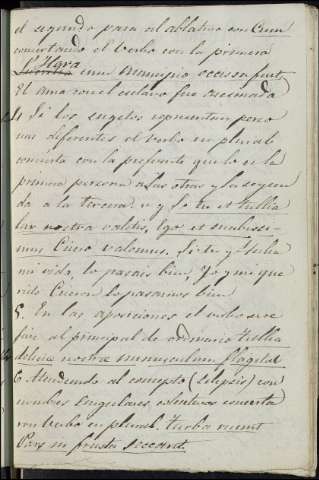 el segundo para el ablativo con Cum
concertando el verbo con la primera
Hera cum Mancipio occissa fuit
El ama con el esclavo fue asesinada
4 Si los sugetos representan perso
nas diferentes el verbo en plural
concierta con la preferente que lo es la
primera persona a las otras y la segun
da a la tercera. v. g. Si tu et Tullia
lux nostra valetis, Ego et suavissi-
mus Cicero valemus. Si tu y Tulia
mi vida, lo pasais bien, Yo y mi que
rido Ciceron lo pasamos bien
5. En las aposiciones el verbo se re
fiere al principal de ordinario Tullia
deliciæ nostræ munusculum flagitat
6 Atendiendo al concepto (Silepsis) con
nombres singulares colectivos concierta
con verbo en plural. Turba ruunt
Pars in frusta secant.